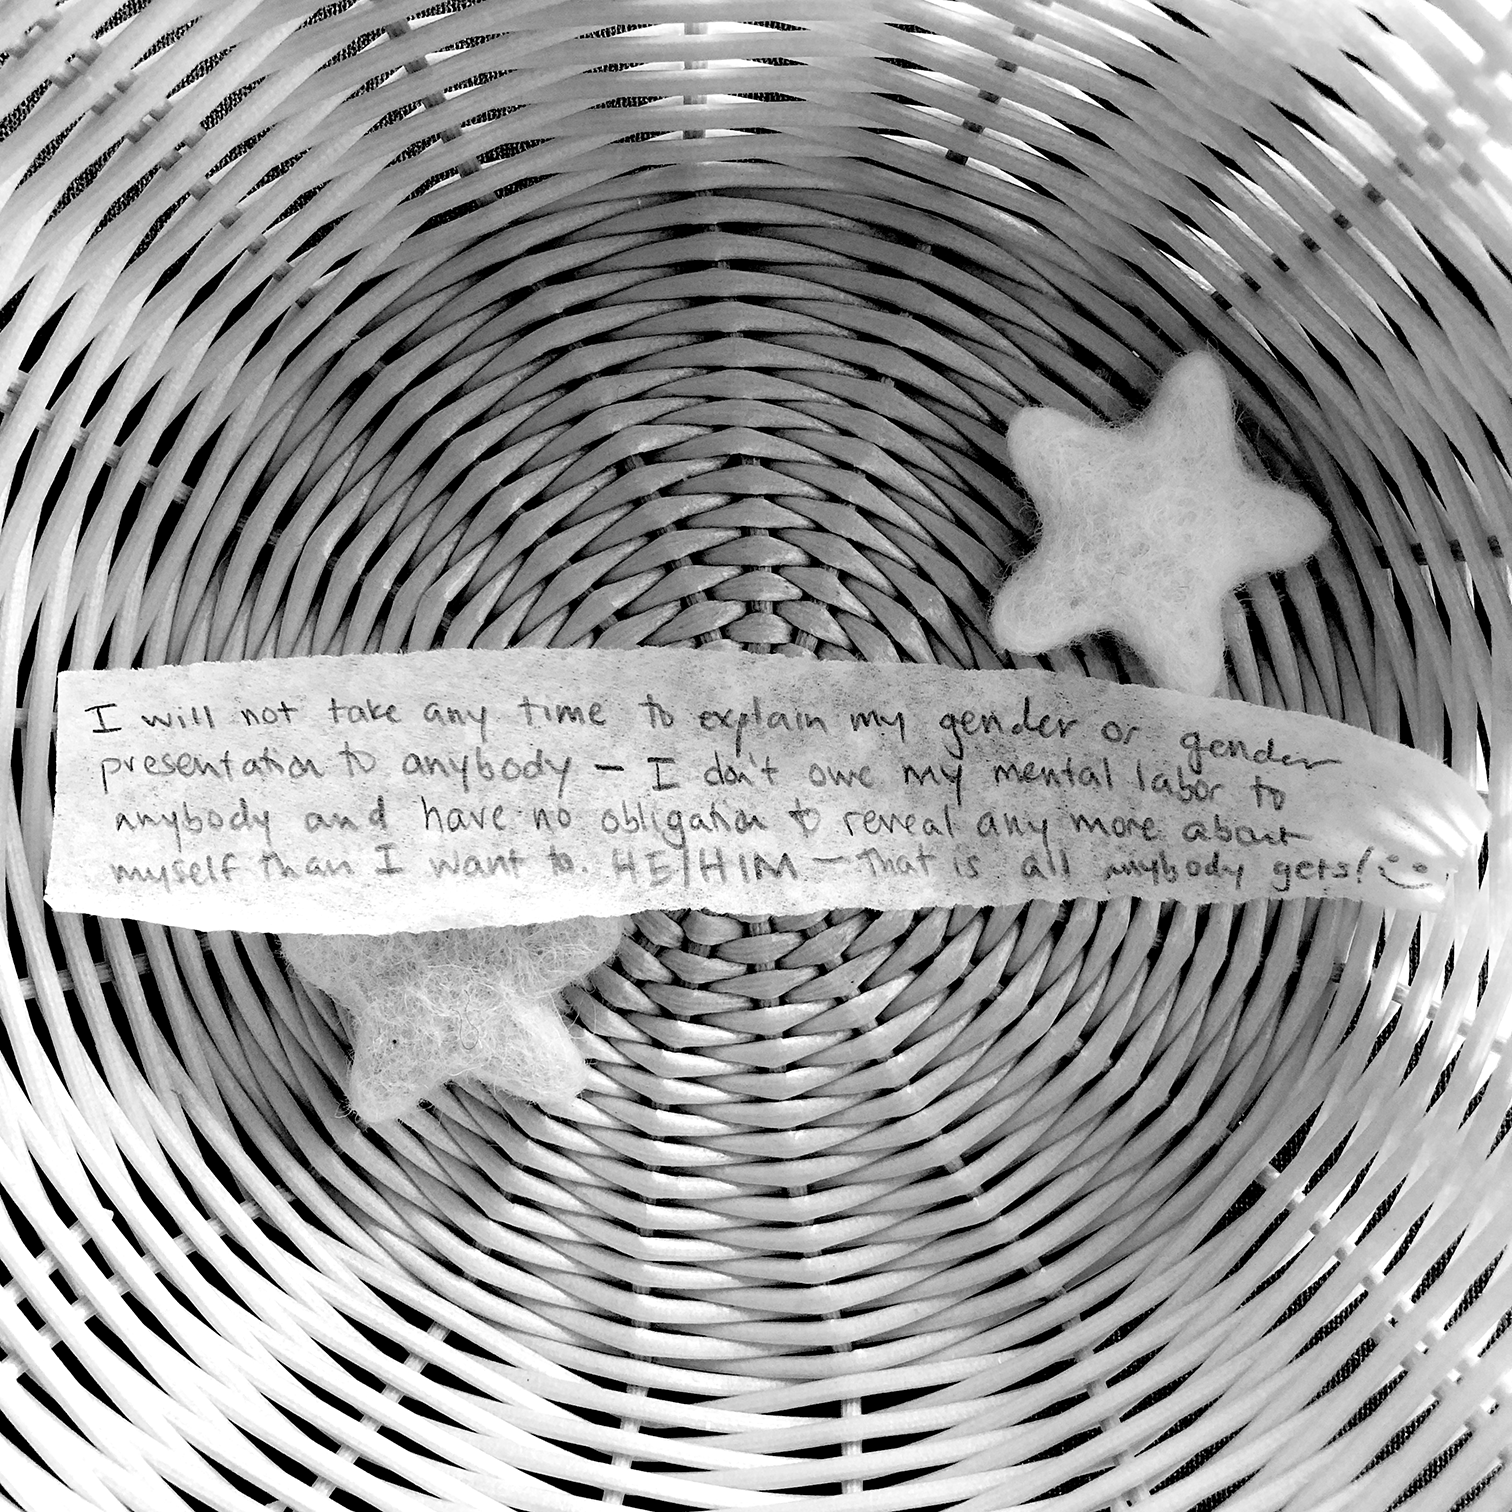 I will not take any time to explain my gender or gender
presentation to anybody – I don't owe my mental labor to
anybody and have no obligation to reveal any more about
myself than I want to. HE/HIM – That is all anybody gets! :)